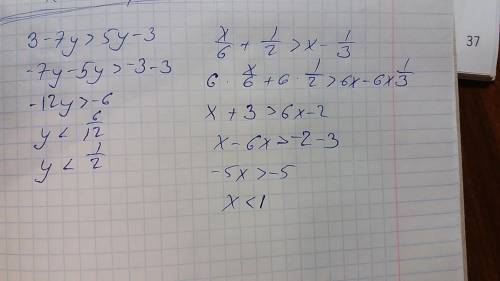 3-7y>5y-3
-7y-5y>-3-3
-12y>-6
y < 6/12
y < 1/2
x/6 + 1/2 > x - 1/3
6 · x/6 + 6 · 1/2 > 6x - 6x 1/3
x + 3 > 6x - 2
x - 6x > -2 - 3
-5x > -5
x < 1
37